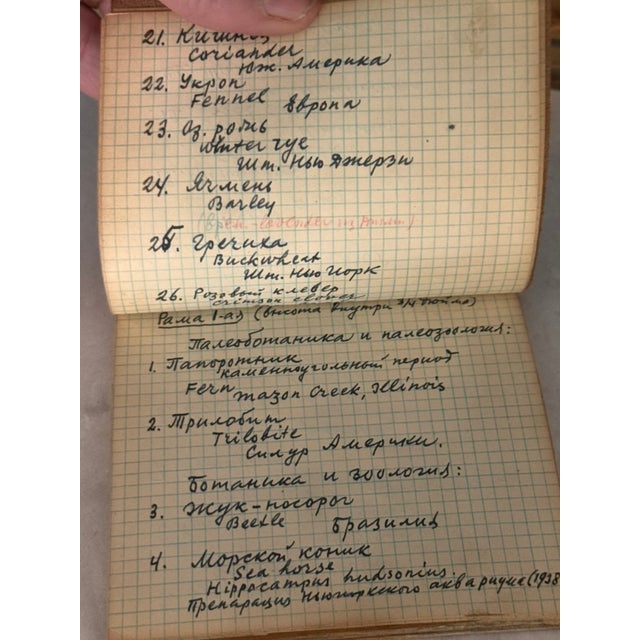 21. Кишнец
Coriander
Юж. Америка
22. Укроп
Fennel Европа
23. Оз. рожь
Winter rye
Шт. Нью Джерзи
24. Ячмень
Barley
25. Гречиха
Buckwheat
Шт. Нью Иорк
26. Розовый клевер
Crimson clover
Рама 1-ая (высота внутри 3/4 дюйма)
Палеоботаника и палеозоология:
1. Папоротник
каменноугольный период
Fern Mazon Creek, Illinois
2. Трилобит
Trilobite
Силур Америки.
Ботаника и зоология:
3. Жук-носорог
Beetle Бразилия
4. Морской коник
Sea horse
Hippocampus hudsonius.
Препарация Ньюиоркского аквариума (1938